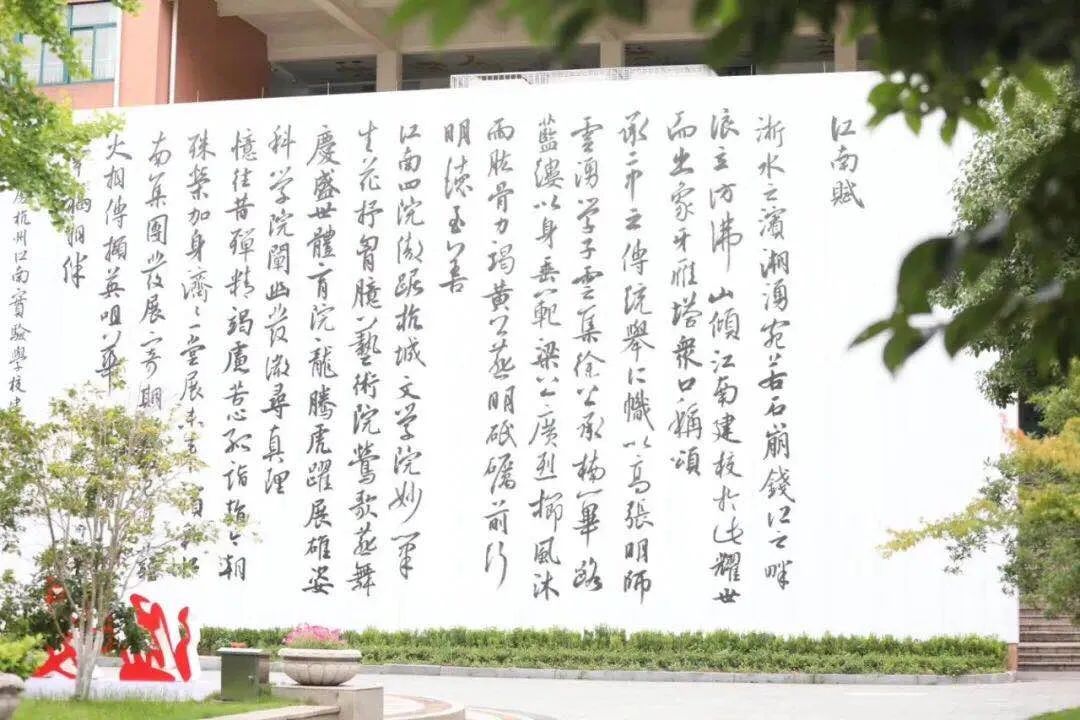 江南賦
浙水之濱湘湧宛若石崩錢江之畔
浪立仿沸山傾江南建校於此耀世
而出象牙雁塔衆口稱頌
承二中之傳統舉仁幟以高張明師
雲湧學子雲集徐公承楠篳路
藍縷以身垂範梁公廣烈櫛風沐
雨肱骨力竭黄公燕明砥礪前行
明德至善
江南四院傲踞杭城文學院妙筆
生花抒胷臆藝術院鶯歌燕舞
慶盛世體育院龍騰虎躍展雄姿
科學院闡幽發微尋真理
憶往昔殫精竭慮苦心孤詣指今朝
殊榮加身濟濟一堂展未來
南集團發展可期
火相傳擷英咀華
杭州江南實驗學校